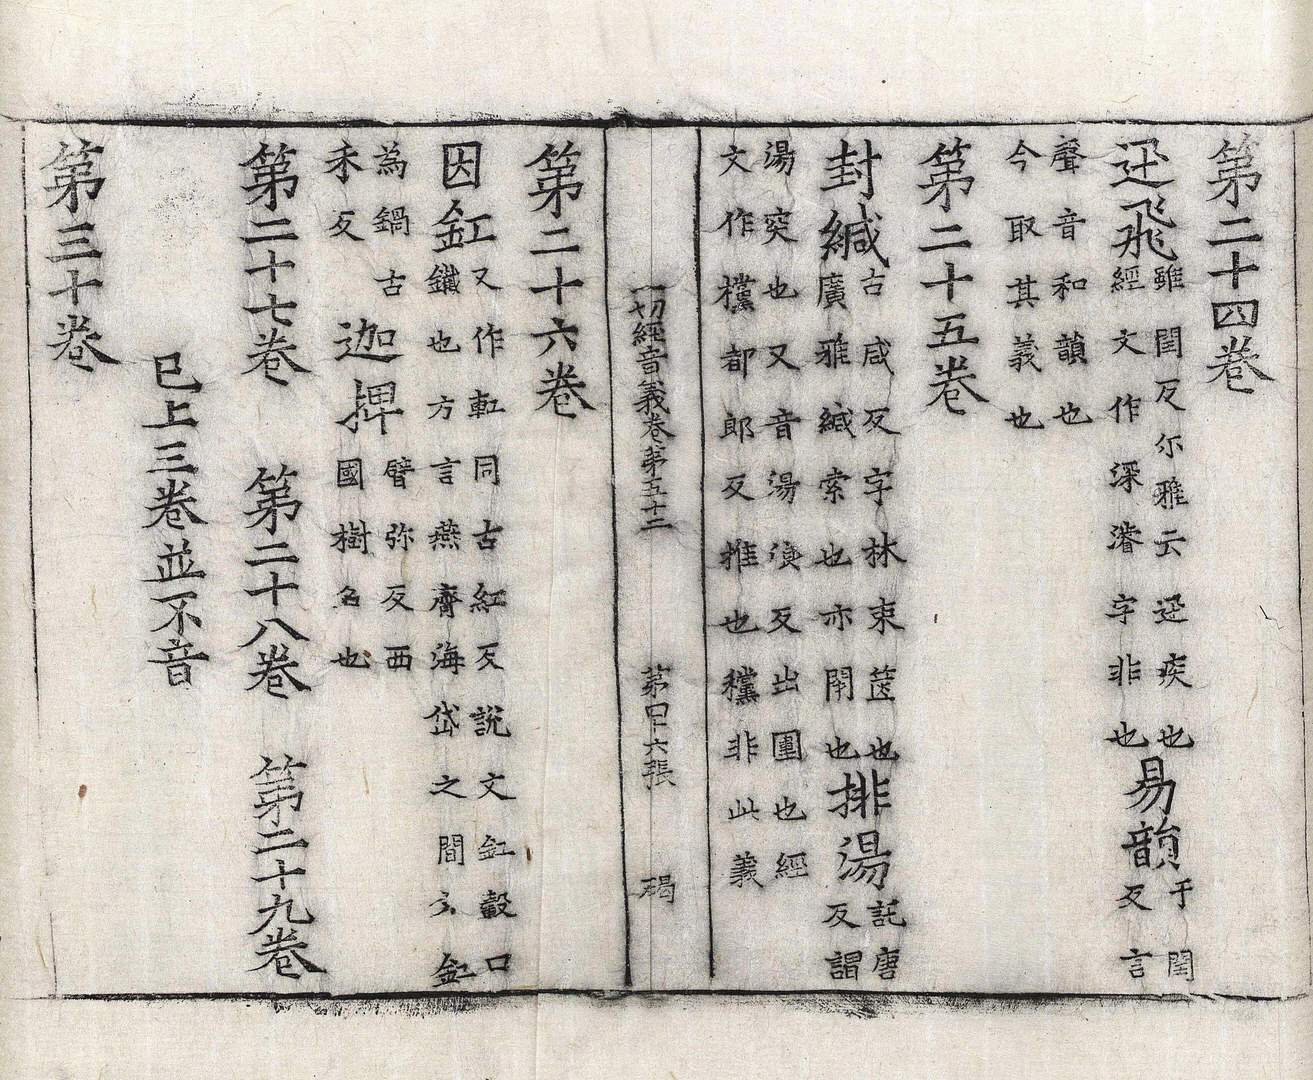 第二十四卷
迅飛
雖閏反尔雅云迅疾也
經文作深濬字非也
易韻
于閏
反言
聲音和韻也
今取其義也
第二十五卷
封緘
古咸反字林束篋也
廣雅緘索也亦閇也
排湯
託唐
反謂
湯突也又音湯反出圍也經
文作欓都郎反推也欓非此義
一切經音義卷第五十二 第四十六張 碣
第二十六卷
因釭
又作同古紅反說文釭轂口
鐵也方言燕齊海岱之間名釭
為鍋古
禾反
迦捭
臂弥反西
國樹名也
第二十七卷 第二十八卷 第二十九卷
已上三卷並不音
第三十卷